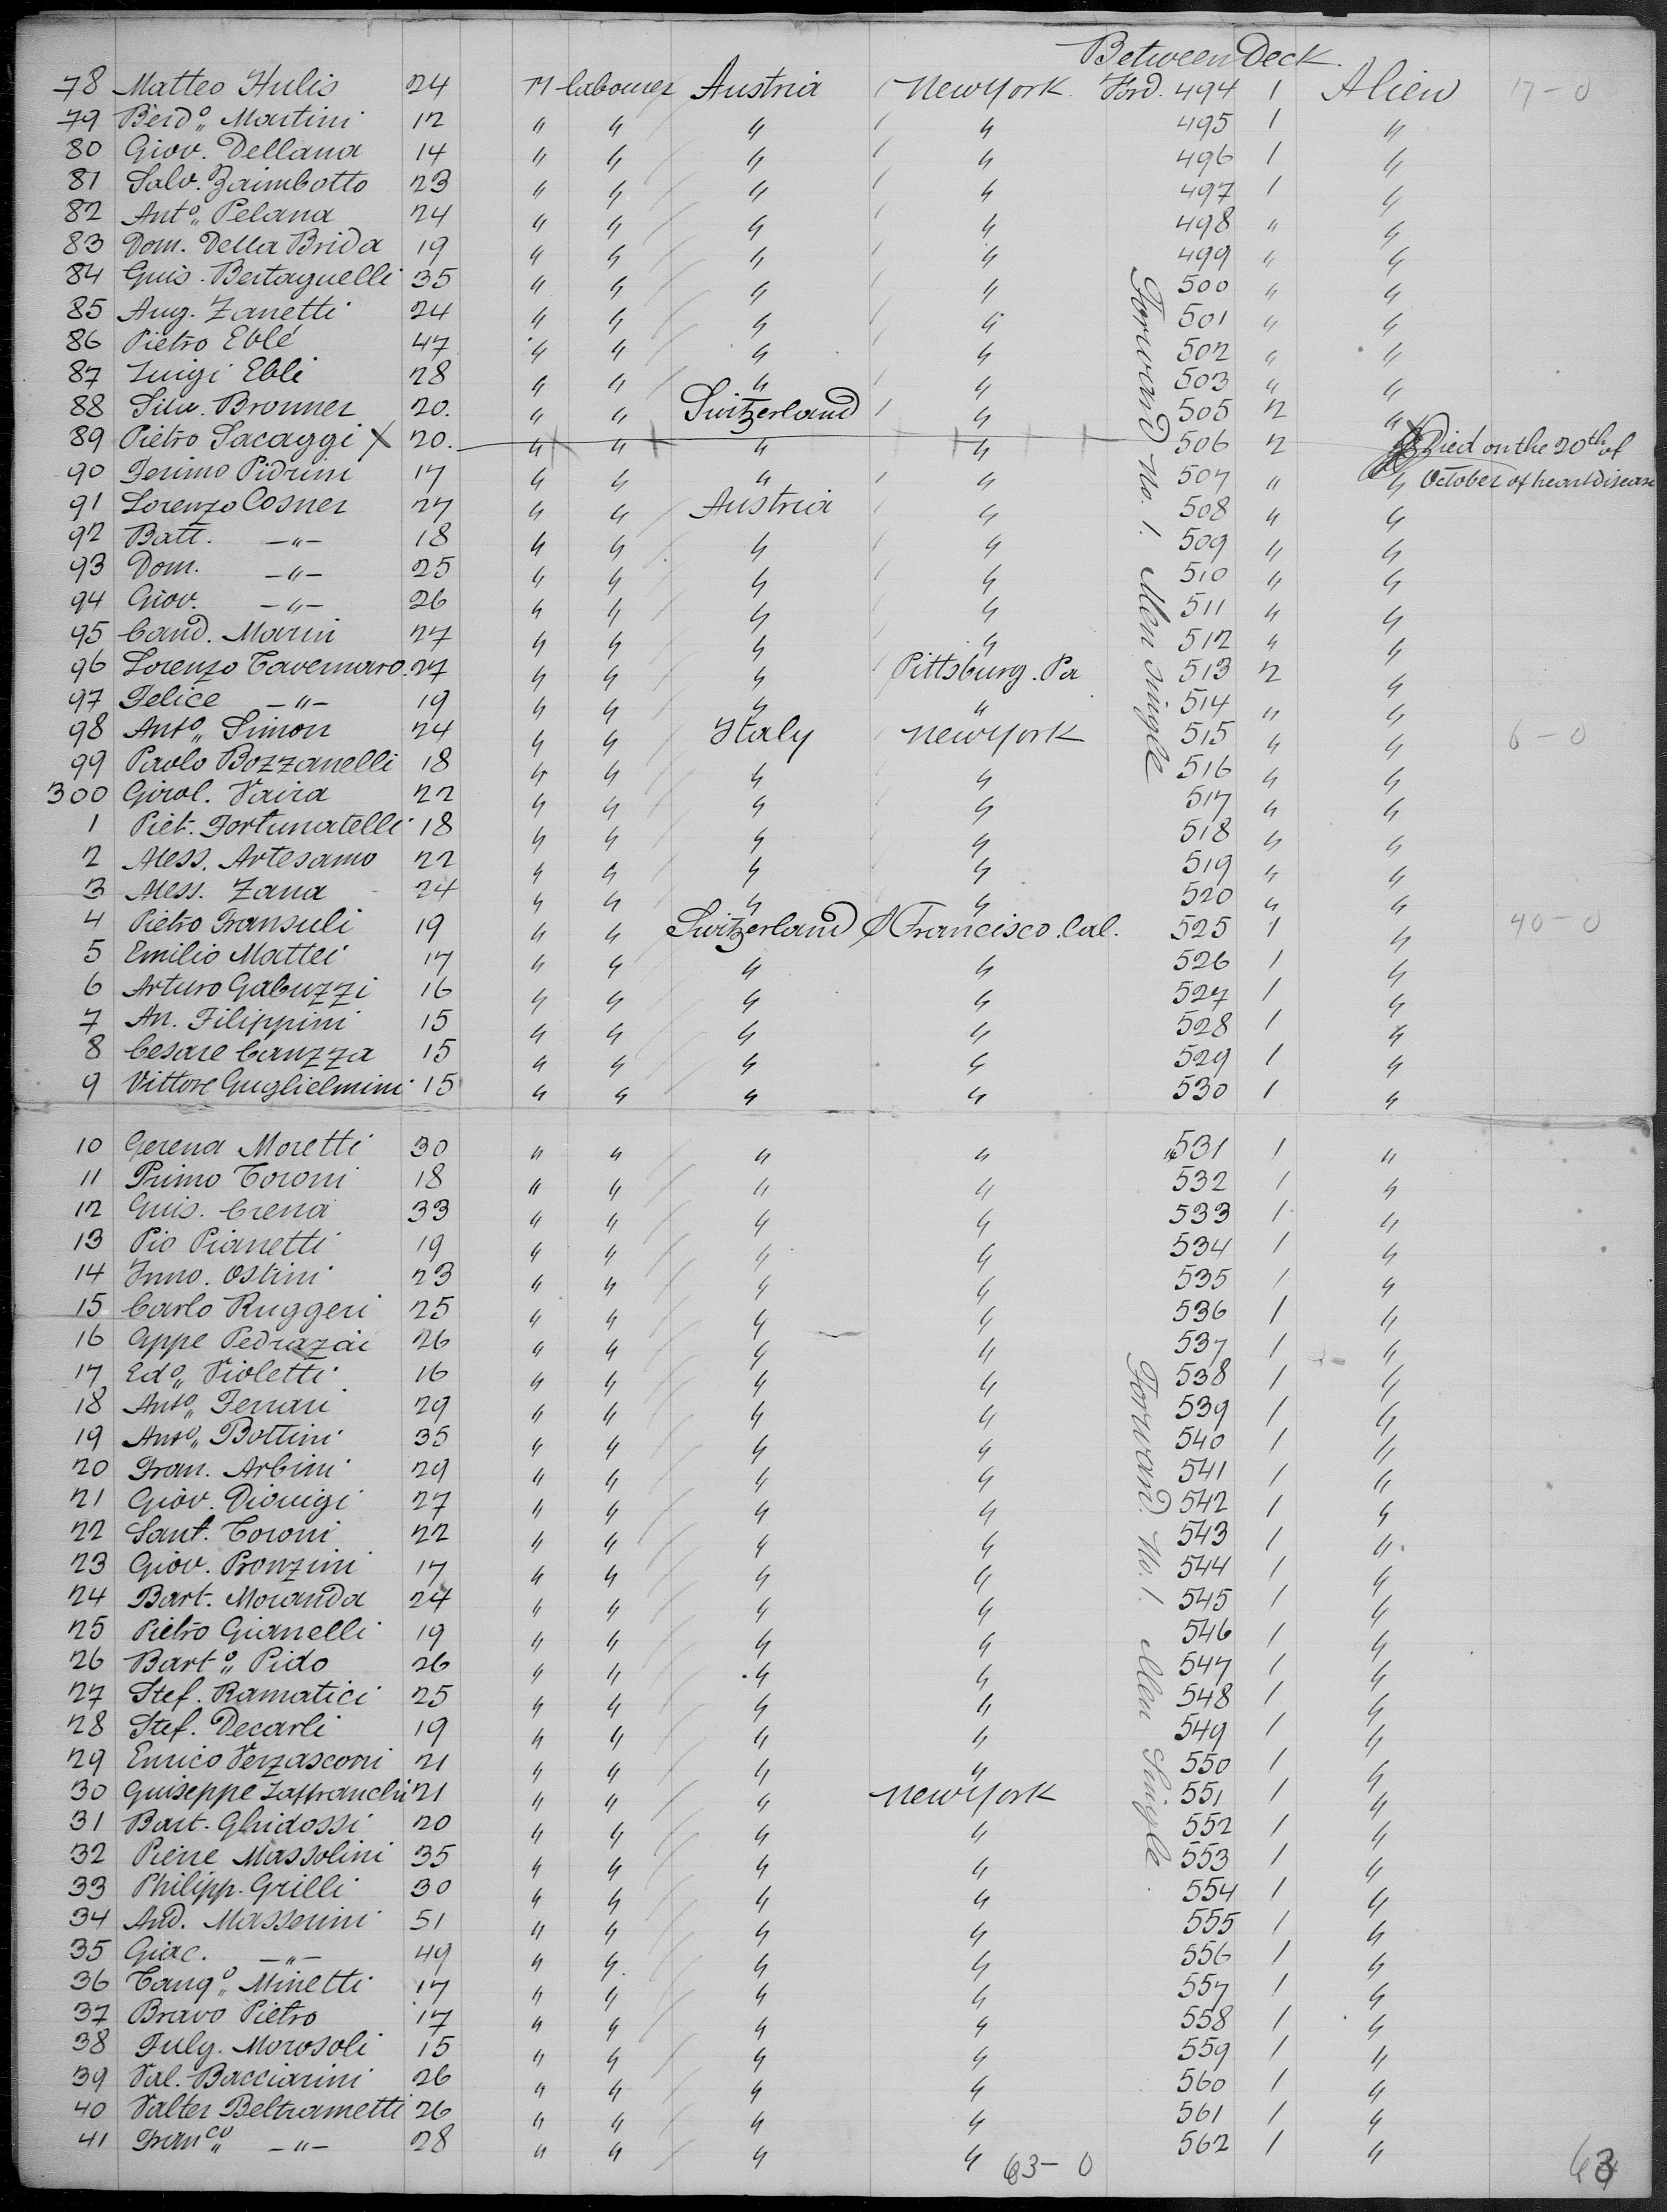 Between Deck.
78 Matteo Hulis 24 M labourer Austria New York. Ford. 494 1 Alien 17-0
79 Berdo„ Martini 12 " " " " 495 1 "
80 Giov. Dellana 14 " " " " 496 1 "
81 Salv. Zaimbotto 23 " " " " 497 1 "
82 Anto„ Pelana 24 " " " " 498 " "
83 Dom. Della Brida 19 " " " " 499 " "
84 Guis. Bertagnelli 35 " " " " 500 " "
85 Aug. Zanetti 24 " " " " 501 " "
86 Pietro Eblé 47 " " " " 502 " "
87 Luigi Ebli 28 " " " " 503 " "
88 Silv. Bronner 20. " " Switzerland " 505 2 "
89 Pietro Sacaggi X 20. " " " " 506 2 " Died on the 20th of
90 Ferimo Pidrini 17 " " " " 507 " " October of heart disease
91 Lorenzo Cosner 27 " " Austria " 508 " "
92 Batt. -"- 18 " " " " 509 " "
93 Dom. -"- 25 " " " " 510 " "
94 Giov. -"- 26 " " " " 511 " "
95 Cand. Marini 27 " " " " 512 " "
96 Lorenzo Tavernaro. 27 " " " Pittsburg. Pa 513 2 "
97 Felice -"- 19 " " " " 514 " "
98 Anto„ Simon 24 " " Italy New York 515 " " 6-0
99 Paolo Bozzanelli 18 " " " " 516 " "
300 Girol. Vaira 22 " " " " 517 " "
1 Piet. Fortunatelli 18 " " " " 518 " "
2 Aless. Artesamo 22 " " " " 519 " "
3 Aless. Zana 24 " " " " 520 " "
4 Pietro Fransuli 19 " " Switzerland S Francisco. Cal. 525 1 " 40-0
5 Emilio Mattei 17 " " " " 526 1 "
6 Arturo Gabuzzi 16 " " " " 527 1 "
7 An. Filippini 15 " " " " 528 1 "
8 Cesare Cauzza 15 " " " " 529 1 "
9 Vittore Guglielmini 15 " " " " 530 1 "
Forward No. 1. Men single
10 Gerena Moretti 30 " " " " 531 1 "
11 Primo Toroni 18 " " " " 532 1 "
12 Guis. Crena 33 " " " " 533 1 "
13 Pio Pianetti 19 " " " " 534 1 "
14 Inno. Ostini 23 " " " " 535 1 "
15 Carlo Ruggeri 25 " " " " 536 1 "
16 Gppe Pedrazai 26 " " " " 537 1 "
17 Edo„ Violetti 16 " " " " 538 1 "
18 Anto„ Ferrari 29 " " " " 539 1 "
19 Anto„ Bottini 35 " " " " 540 1 "
20 Fran. Arbini 29 " " " " 541 1 "
21 Giov. Dionigi 27 " " " " 542 1 "
22 Sant. Toroni 22 " " " " 543 1 "
23 Giov. Pronzini 17 " " " " 544 1 "
24 Bart. Moranda 24 " " " " 545 1 "
25 Pietro Gianelli 19 " " " " 546 1 "
26 Barto„ Pido 26 " " " " 547 1 "
27 Stef. Ramatici 25 " " " " 548 1 "
28 Stef. Decarli 19 " " " " 549 1 "
29 Enrico Verzasconi 21 " " " " 550 1 "
30 Guiseppe Zaffranchi 21 " " " New York 551 1 "
31 Bart. Ghidossi 20 " " " " 552 1 "
32 Pierre Massolini 35 " " " " 553 1 "
33 Philipp. Grilli 30 " " " " 554 1 "
34 And. Masserini 51 " " " " 555 1 "
35 Giac. -"- 49 " " " " 556 1 "
36 Tango„ Minetti 17 " " " " 557 1 "
37 Bravo Pietro 17 " " " " 558 1 "
38 Fulg. Morosoli 15 " " " " 559 1 "
39 Val. Bacciarini 26 " " " " 560 1 "
40 Valter Beltrametti 26 " " " " 561 1 "
41 Franco„ -"- 28 " " " " 562 1 "
Forward. No. 1. Men Single.
63-0
63